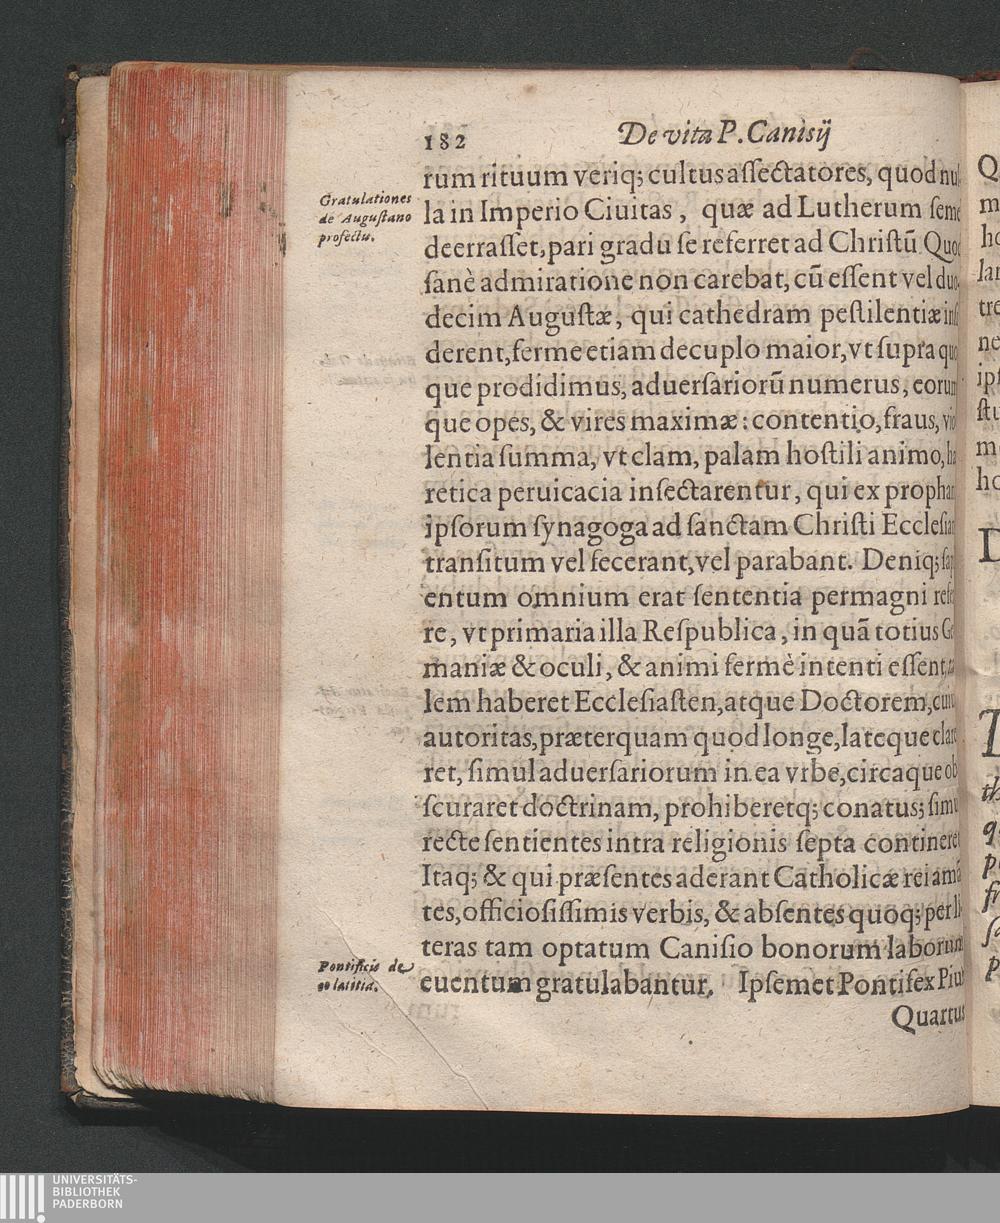 182 De vita P. Canisij
Gratulationes
de Augustano
profectu.
rum rituum veriq; cultus assectatores, quod nul
la in Imperio Ciuitas, quæ ad Lutherum seme
deerrasset, pari gradu se referret ad Christũ Quo
sanè admiratione non carebat, cũ essent vel duo
decim Augustæ, qui cathedram pestilentiæ insi
derent, ferme etiam decuplo maior, vt supra quo
que prodidimus, aduersariorũ numerus, eorum
que opes, & vires maximæ: contentio, fraus, vio
lentia summa, vt clam, palam hostili animo, hæ
retica peruicacia insectarentur, qui ex prophan
ipsorum synagoga ad sanctam Christi Ecclesiam
transitum vel fecerant, vel parabant. Deniq; sapi
entum omnium erat sententia permagni refer
re, vt primaria illa Respublica, in quã totius Ger
maniæ & oculi, & animi fermè intenti essent, ta
lem haberet Ecclesiasten, atque Doctorem, cuius
autoritas, præterquam quod longe, lateque clare
ret, simul aduersariorum in ea vrbe, circaque ob
scuraret doctrinam, prohiberetq; conatus; simul
recte sentientes intra religionis septa contineret
Itaq; & qui præsentes aderant Catholicæ rei amã
tes, officiosissimis verbis, & absentes quoq; per li
teras tam optatum Canisio bonorum laborum
euentum gratulabantur. Ipsemet Pontifex Pius
Pontificis de
eo lætitia.
Quartus
UNIVERSITÄTS-
BIBLIOTHEK
PADERBORN